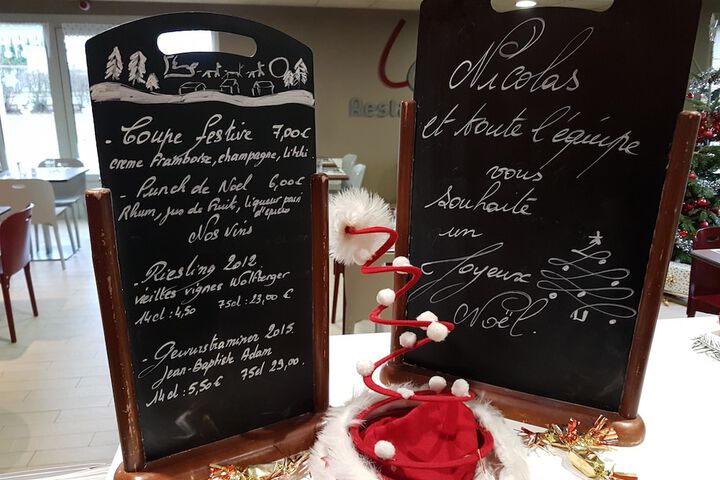 - Coupe festive 7,00€
creme Framboise, champagne, litchi
- Punch de Noël 6,00€
Rhum, jus de Fruit, liqueur pain d'épices
Nos vins
- Riesling 2012
vieilles vignes Wolfberger
14cl : 4,50 75cl : 23,00 €
- Gewurstraminer 2015.
Jean-Baptiste Adam
14cl : 5,50€ 75cl 29,00.
Nicolas
et toute l'équipe
vous
souhaite
un
Joyeux
Noël.